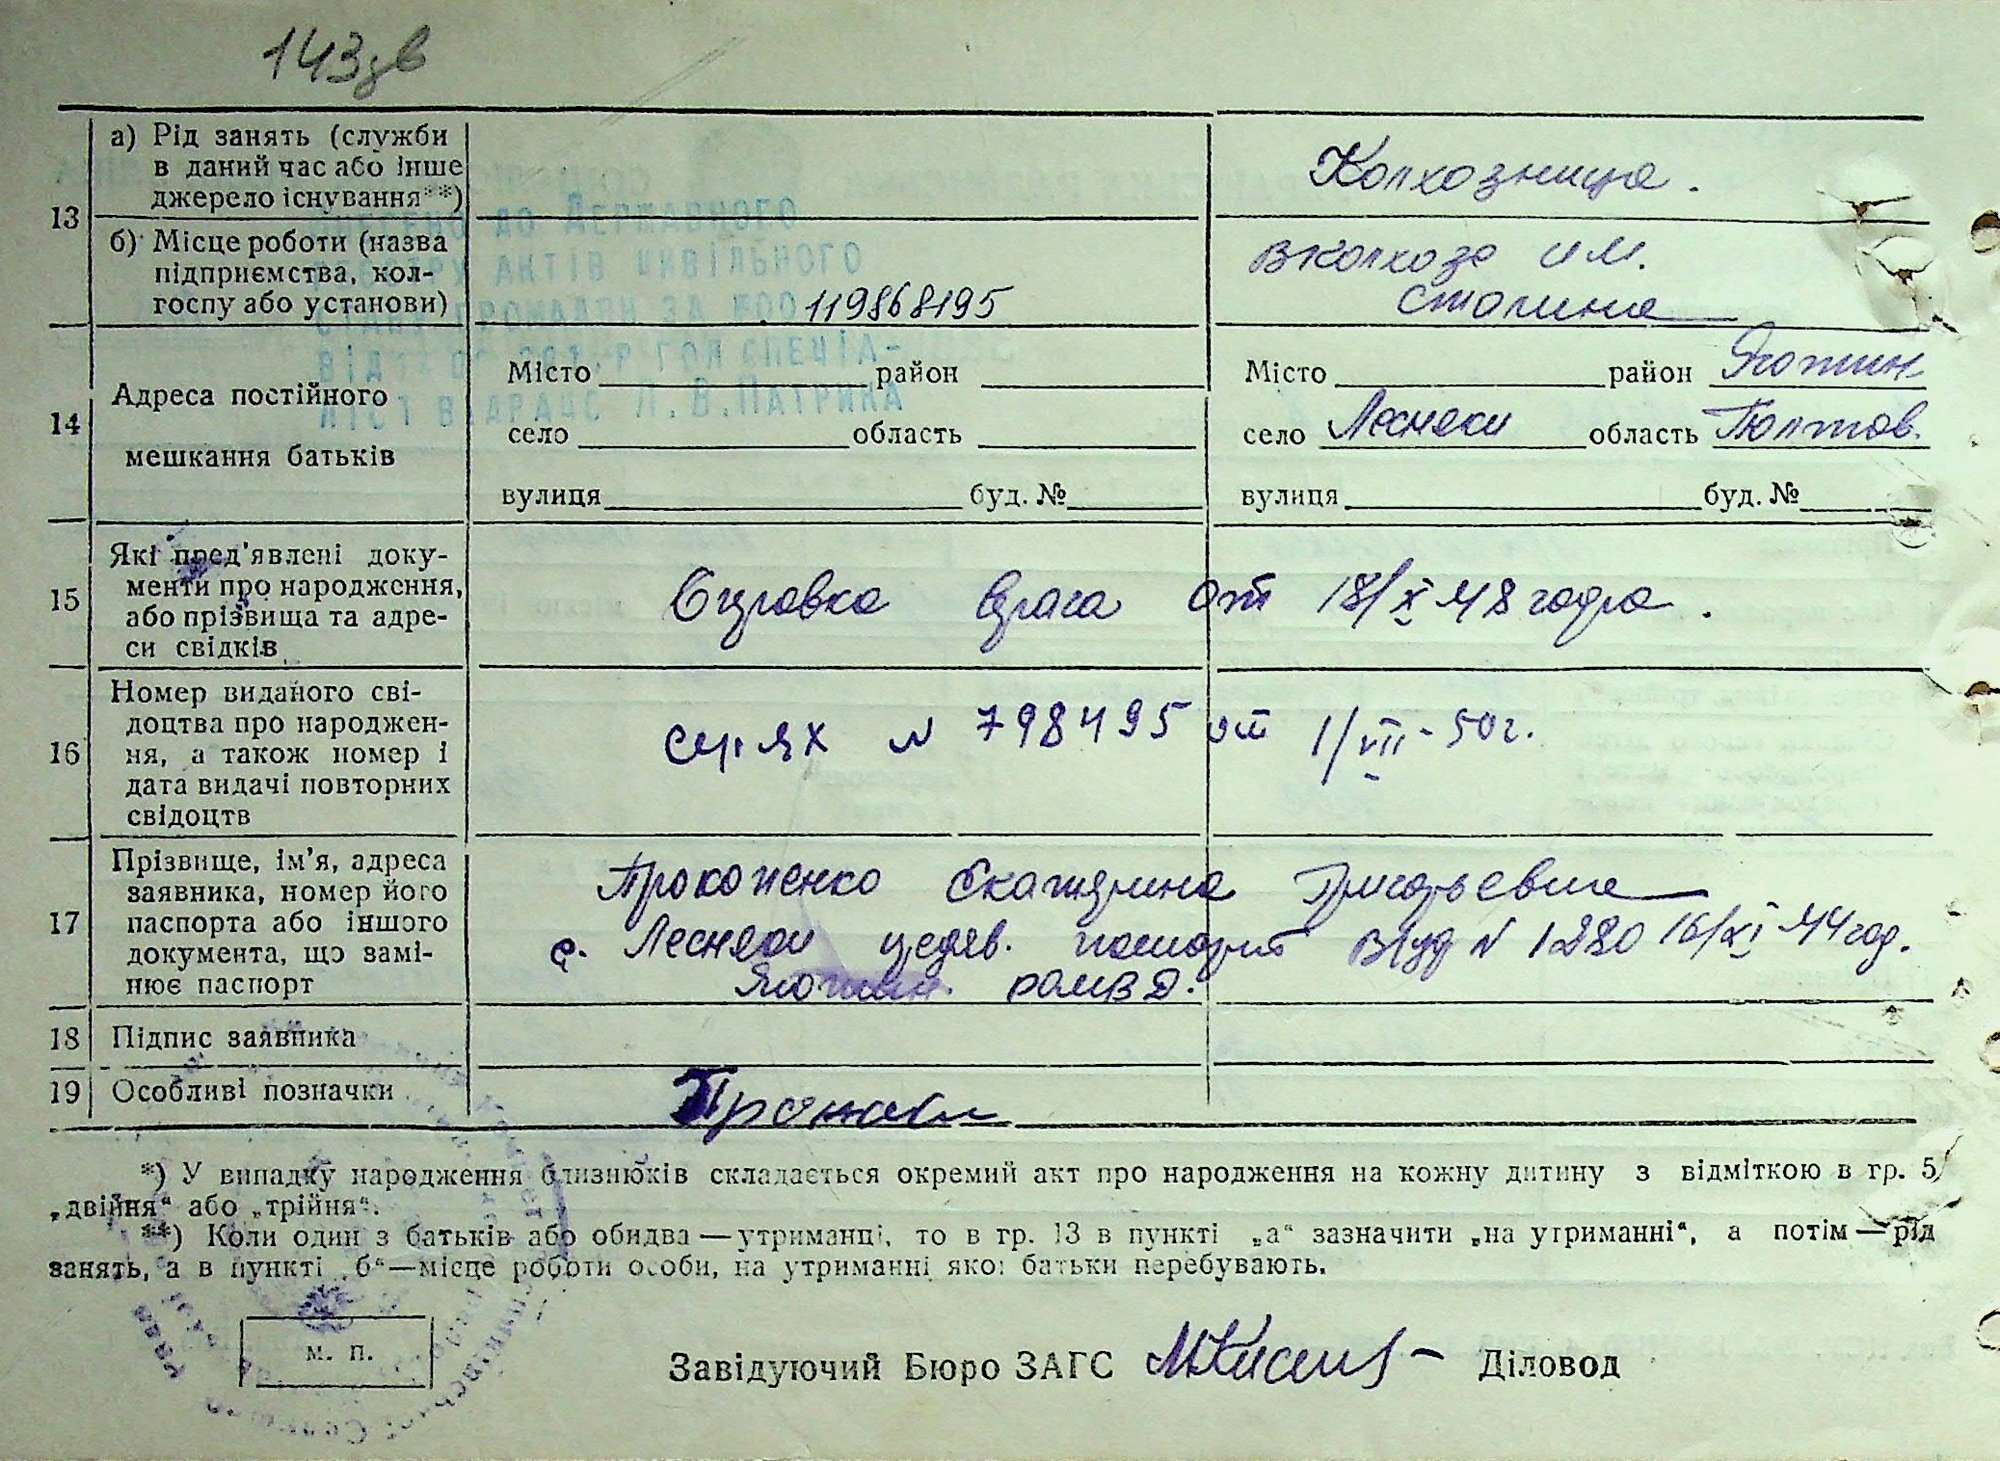 143зв
13
а) Рід занять (служби
в даний час або інше
джерело існування**)
Колхозница.
б) Місце роботи (назва
підприємства, кол-
госпу або установи)
в колхозе им.
Сталина
ВНЕСЕНО ДО ДЕРЖАВНОГО
РЕЄСТРУ АКТІВ ЦИВІЛЬНОГО
СТАНУ ГРОМАДЯН ЗА №00119868195
ГОЛ СПЕЦІА-
ЛІСТ ВІДРАЦС Л.В.ПАТРИКА
14
Адреса постійного
мешкання батьків
Місто район
село область
вулиця буд. №
Місто район Яготин
село Лесняки область Полтав.
вулиця буд. №
15
Які пред'явлені доку-
менти про народження,
або прізвища та адре-
си свідків
Справка врача от 18/X 48 года.
16
Номер виданого сві-
доцтва про народжен-
ня, а також номер і
дата видачі повторних
свідоцтв
N 798495 от 1/VII-50г.
17
Прізвище, ім'я, адреса
заявника, номер його
паспорта або іншого
документа, що замі-
нює паспорт
Прокопенко Екатерина Григорьевна
с. Лесняки предяв. паспорт N 1280 16/XI-44 год.
Яготин. РОМВД.
18 Підпис заявника
19 Особливі позначки
*) У випадку народження близнюків складається окремий акт про народження на кожну дитину з відміткою в гр. 5
„двійня“ або „трійня“.
**) Коли один з батьків або обидва—утриманці, то в гр. 13 в пункті „а“ зазначити „на утриманні“, а потім—рід
занять, а в пункті „б“—місце роботи особи, на утриманні якої батьки перебувають.
м. п.
Завідуючий Бюро ЗАГС Діловод